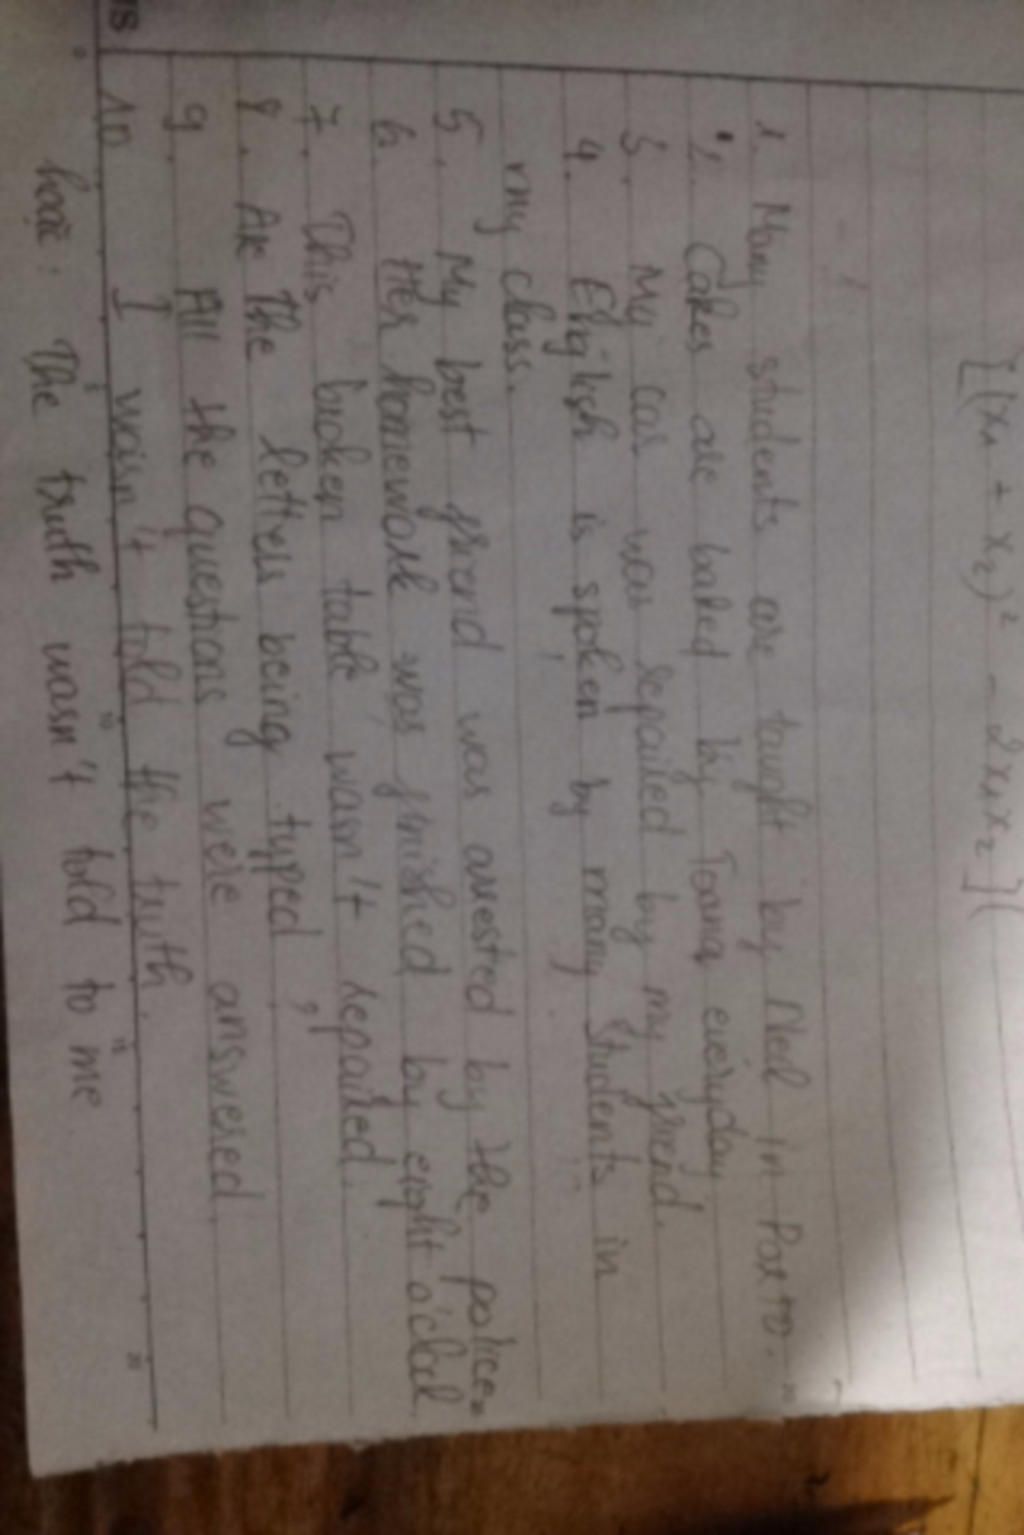 [(x₁ + x₂)² - 2x₁x₂](
1. Many students are taught by Neil in Porto.
2. Cakes are baked by Joana everyday
3. My car was repaired by my friend.
4. English is spoken by many students in
my class.
5. My best friend was arrested by the police.
6. Her homework was finished by eight o'clock
7. This broken table wasn't repaired.
8. Are the letters being typed,
9. All the questions were answered.
10 I wasn't told the truth.
hoặc: The truth wasn't told to me.